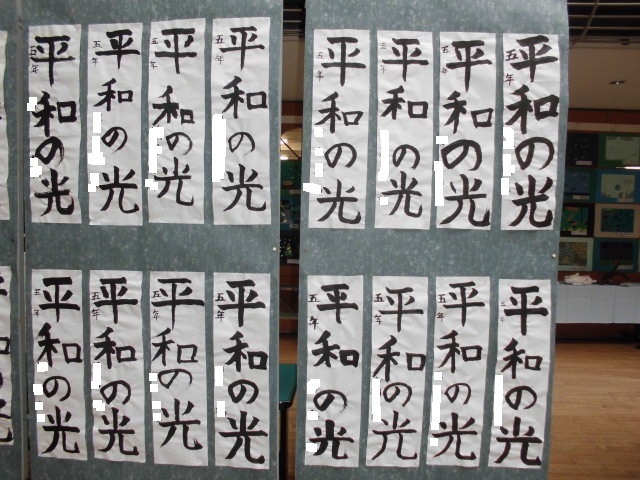 平和の光
五年
平和の光
五年
平和の光
五年
平和の光
五年
平和の光
五年
平和の光
五年
平和の光
五年
平和の光
五年
平和の光
五年
平和の光
五年
平和の光
五年
平和の光
五年
平和の光
五年
平和の光
五年
平和の光
五年
平和の光